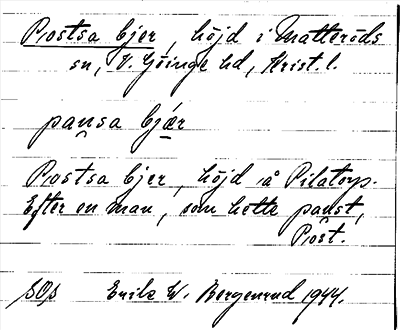 Postsa bjer, höjd i Matteröds
sn, V. Göinge hd, Krist. l.
pansa bjär
Postsa bjer, höjd å Pilatorp.
Efter en man, som hette panst,
Post.
SOs Erik W. Bergenrud 1944.